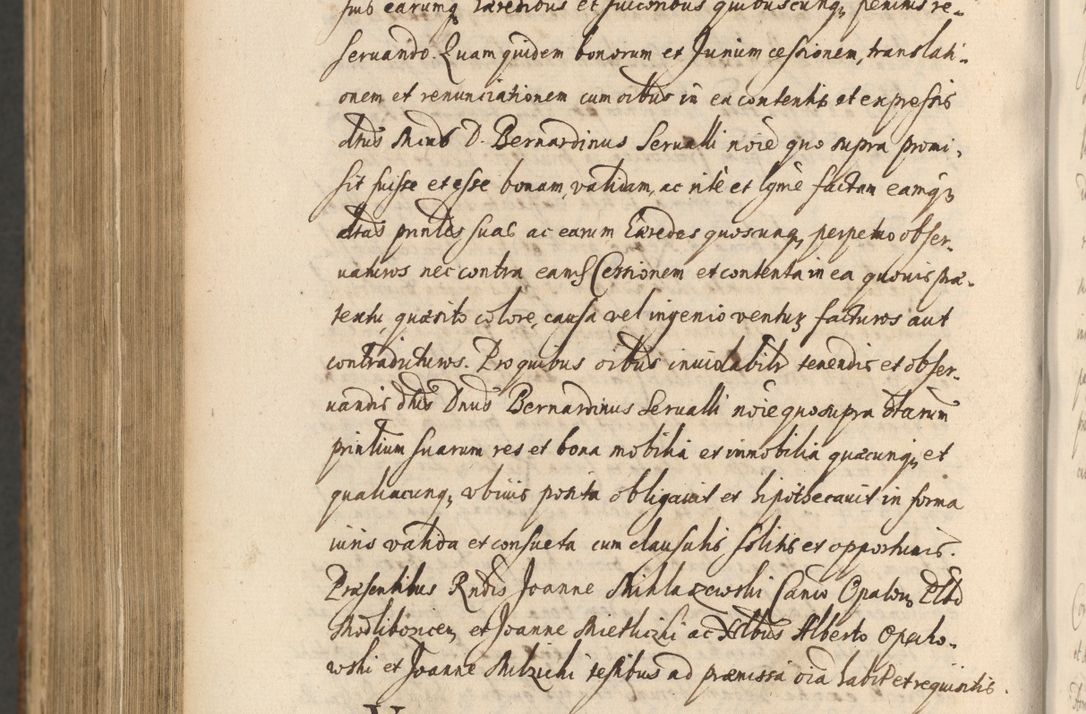 suis earumq, haeredibus et successoribus quibuscunq, pleniss re-
seruando. Quam quidem bonorum et Jurium cessionem, translati-
onem et renunciationem cum oibus in ea contentis et expressis
dtus D. Bernardinus Serualli noie quo supra promi-
sit fuisse et esse bonam, validam, ac rite et lgme factam eamq,
dtas pnles suas ac earum haeredes quoscunq, perpetuo obser-
uaturos nec contra eam Cessionem et contenta in ea quouis prae-
textu, quaesito colore, causa vel ingenio ventur facturos aut
contradicturos. Pro quibus oibus inuiolabilr tenendis et obser-
uandis dtus Dnus Bernardinus Serualli noie quo supra dtarum
prinlium suarum res et bona mobilia et immobilia quaecunq, et
qualiacunq, vbiuis posita obligauit et hipothecauit in forma
iuris valida et consueta cum clausulis solitis et opportunis.
Praesentibus Rndis Joanne Miklaszewski Canco Opatou, Plbo
Modliboricen, et Joanne ac Nlbus Alberto Opacko-
wski et Joanne testibus ad praemissa oia habit et requisitis.